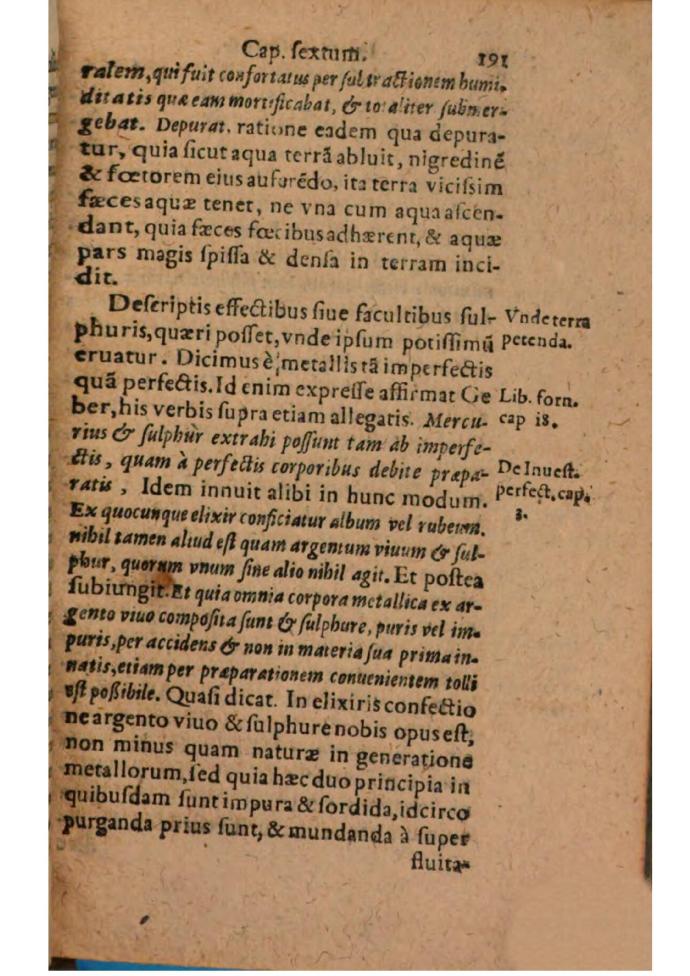 Cap. ſextum. 191
ralem, qui fuit confortatus per ſubtractionem humi-
ditatis quæ eam mortificabat, & totaliter ſubmer-
gebat. Depurat, ratione eadem qua depura-
tur, quia ſicut aqua terrã abluit, nigredinẽ
& fœtorem eius auferẽdo, ita terra viciſsim
fæces aquæ tenet, ne vna cum aqua aſcen-
dant, quia fæces fœcibus adhærent, & aquæ
pars magis ſpiſſa & denſa in terram inci-
dit.
Deſcriptis effectibus ſiue facultibus ſul-
phuris, quæri poſſet, vnde ipſum potiſſimũ
eruatur. Dicimus è metallis tã imperfectis
quã perfectis. Id enim expreſſe affirmat Ge
ber, his verbis ſupra etiam allegatis. Mercu-
rius & ſulphur extrahi poſſunt tam ab imperfe-
ctis, quam à perfectis corporibus debite præpa-
ratis, Idem innuit alibi in hunc modum.
Ex quocunque elixir conficiatur album vel rubeum,
nihil tamen aliud eſt quam argentum viuum & ſul-
phur, quorum vnum ſine alio nihil agit. Et poſtea
ſubiungit. Et quia omnia corpora metallica ex ar-
gento viuo compoſita ſunt & ſulphure, puris vel im-
puris, per accidens & non in materia ſua prima in-
natis, etiam per præparationem conuenientem tolli
eſt poßibile. Quaſi dicat. In elixiris confectio
ne argento viuo & ſulphure nobis opus eſt,
non minus quam naturæ in generatione
metallorum, ſed quia hæc duo principia in
quibuſdam ſunt impura & ſordida, idcirco
purganda prius ſunt, & mundanda à ſuper
fluita-
Vnde terra
petenda.
Lib. forn.
cap 18.
De Inueſt.
perfect. cap.
3.